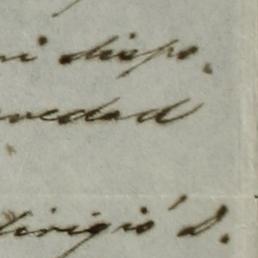 mi dispo.
vedad
dirigió D.